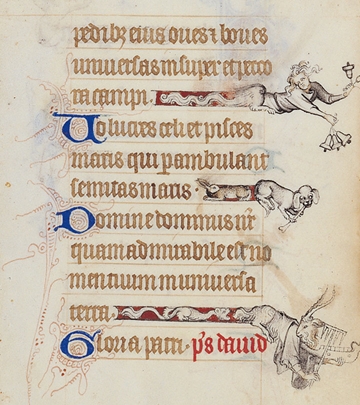 pedibz eius oues ⁊ boues
uniuersas insuper et peco
ra campi.
Volucres celi et pisces
maris qui perambulant
semitas maris.
Domine dominus nr
quam admirabile est no
men tuum in uniuersa
terra.
Gloria patri. ps dauid